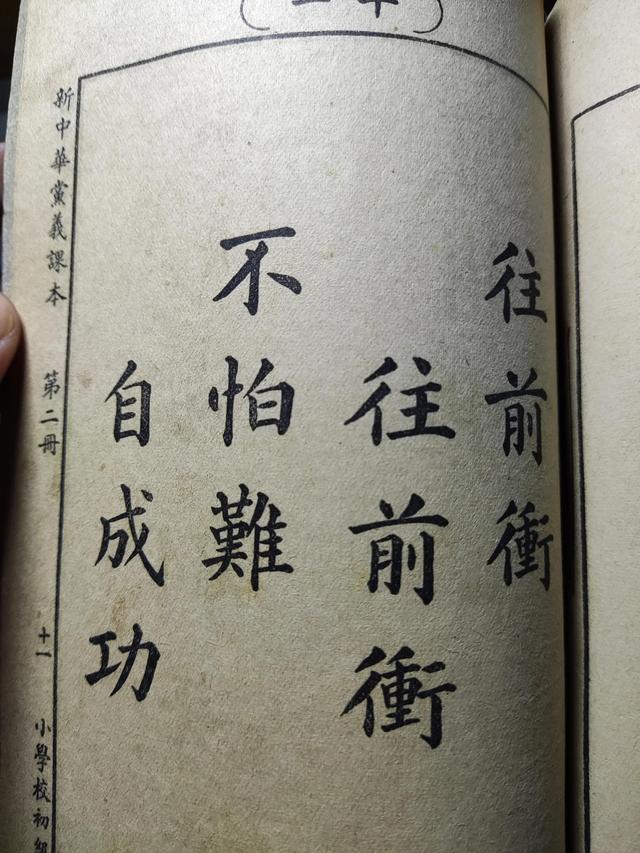 往前衝
往前衝
不怕難
自成功
新中華黨義課本 第二冊 十一 小學校初級